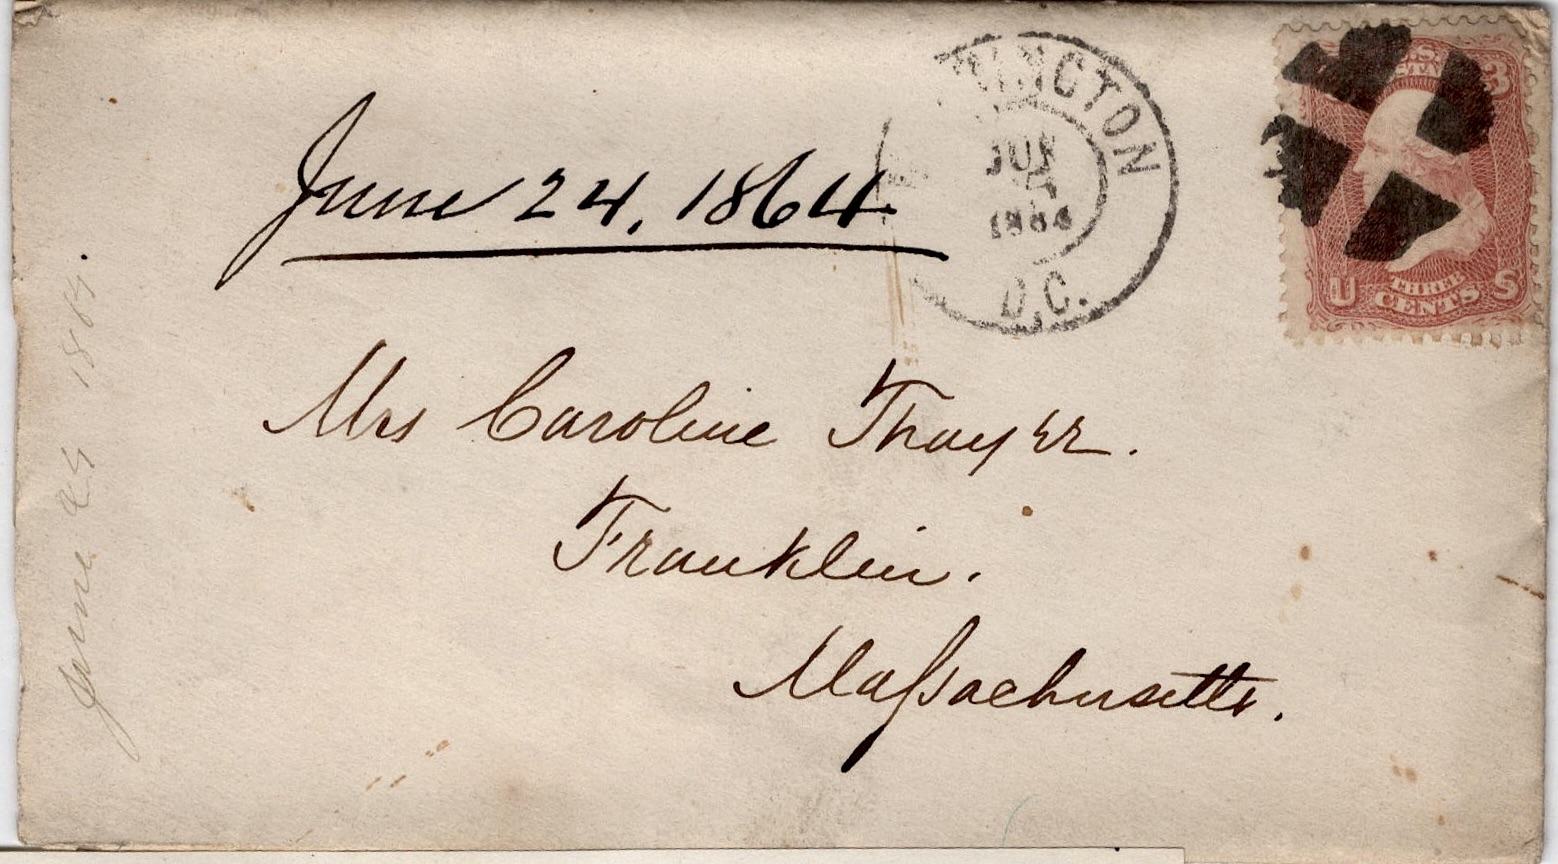 June 24, 1864
WASHINGTON
JUN
1864
D.C.
3
U THREE CENTS S
Mrs Caroline Thayer.
Franklin.
Massachusetts.
June 24 1864.